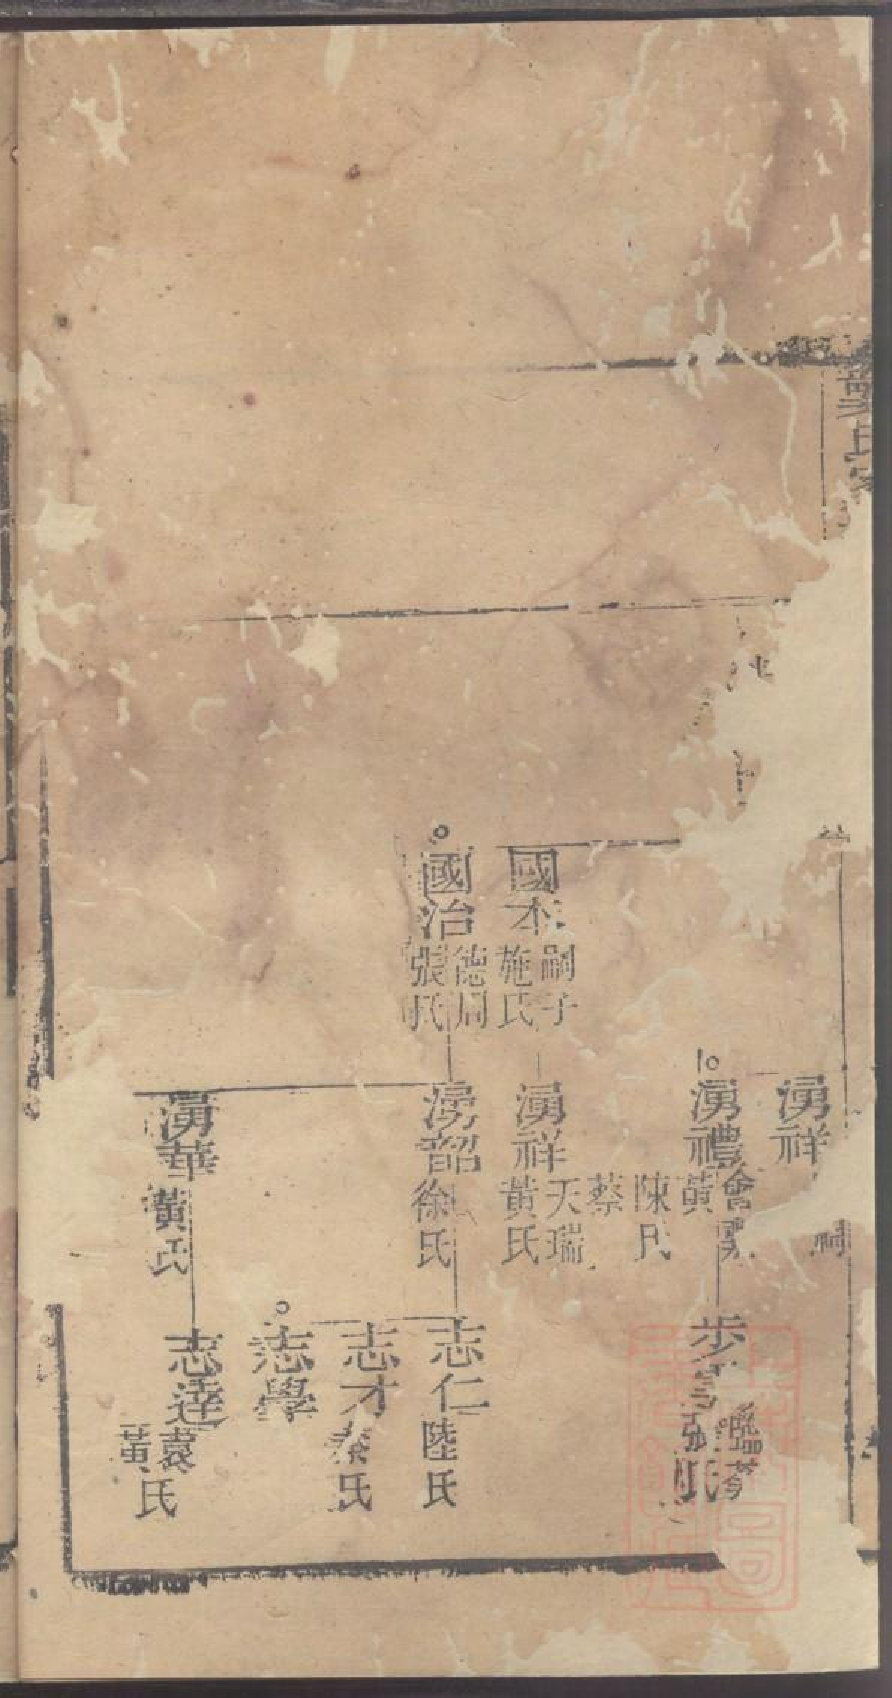 氏家
國本
嗣子
施氏
國治
德周
張氏
湧祥
嗣
湧禮
黃
陳氏
蔡
湧祥
天瑞
黃氏
湧韶
徐氏
湧華
黃氏
步
張氏
志仁
陸氏
志才
秦氏
志學
志達
袁
黃氏